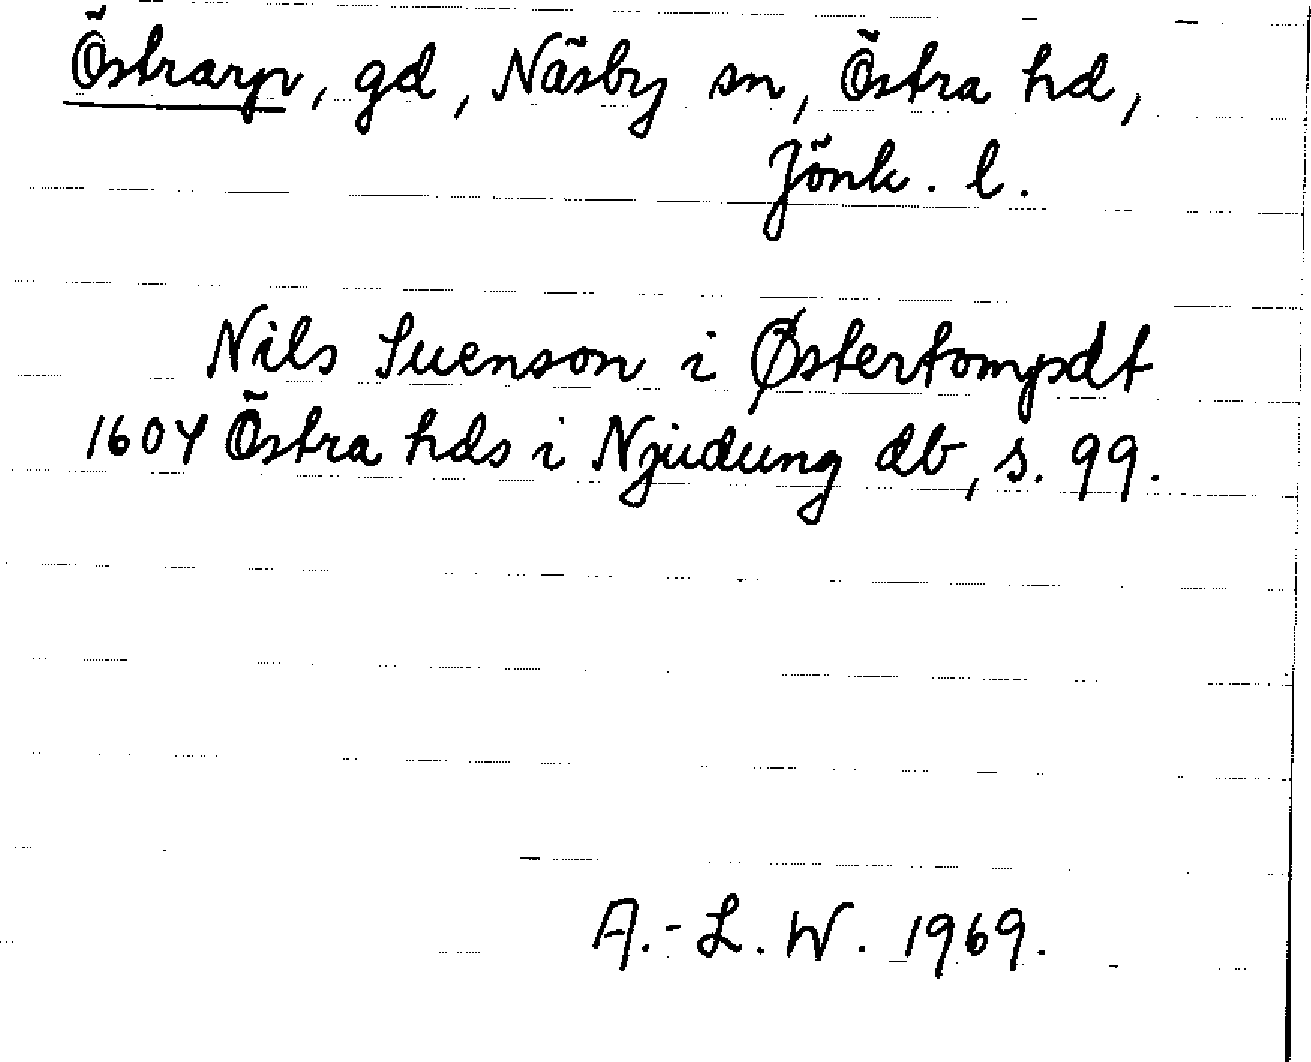 Östrarp, gd, Näsby sn, Östra hd,
Jönk. l.
Nils Suenson i Østertompdt
1604 Östra hds i Njudung db, s. 99.
A.-L. W. 1969.